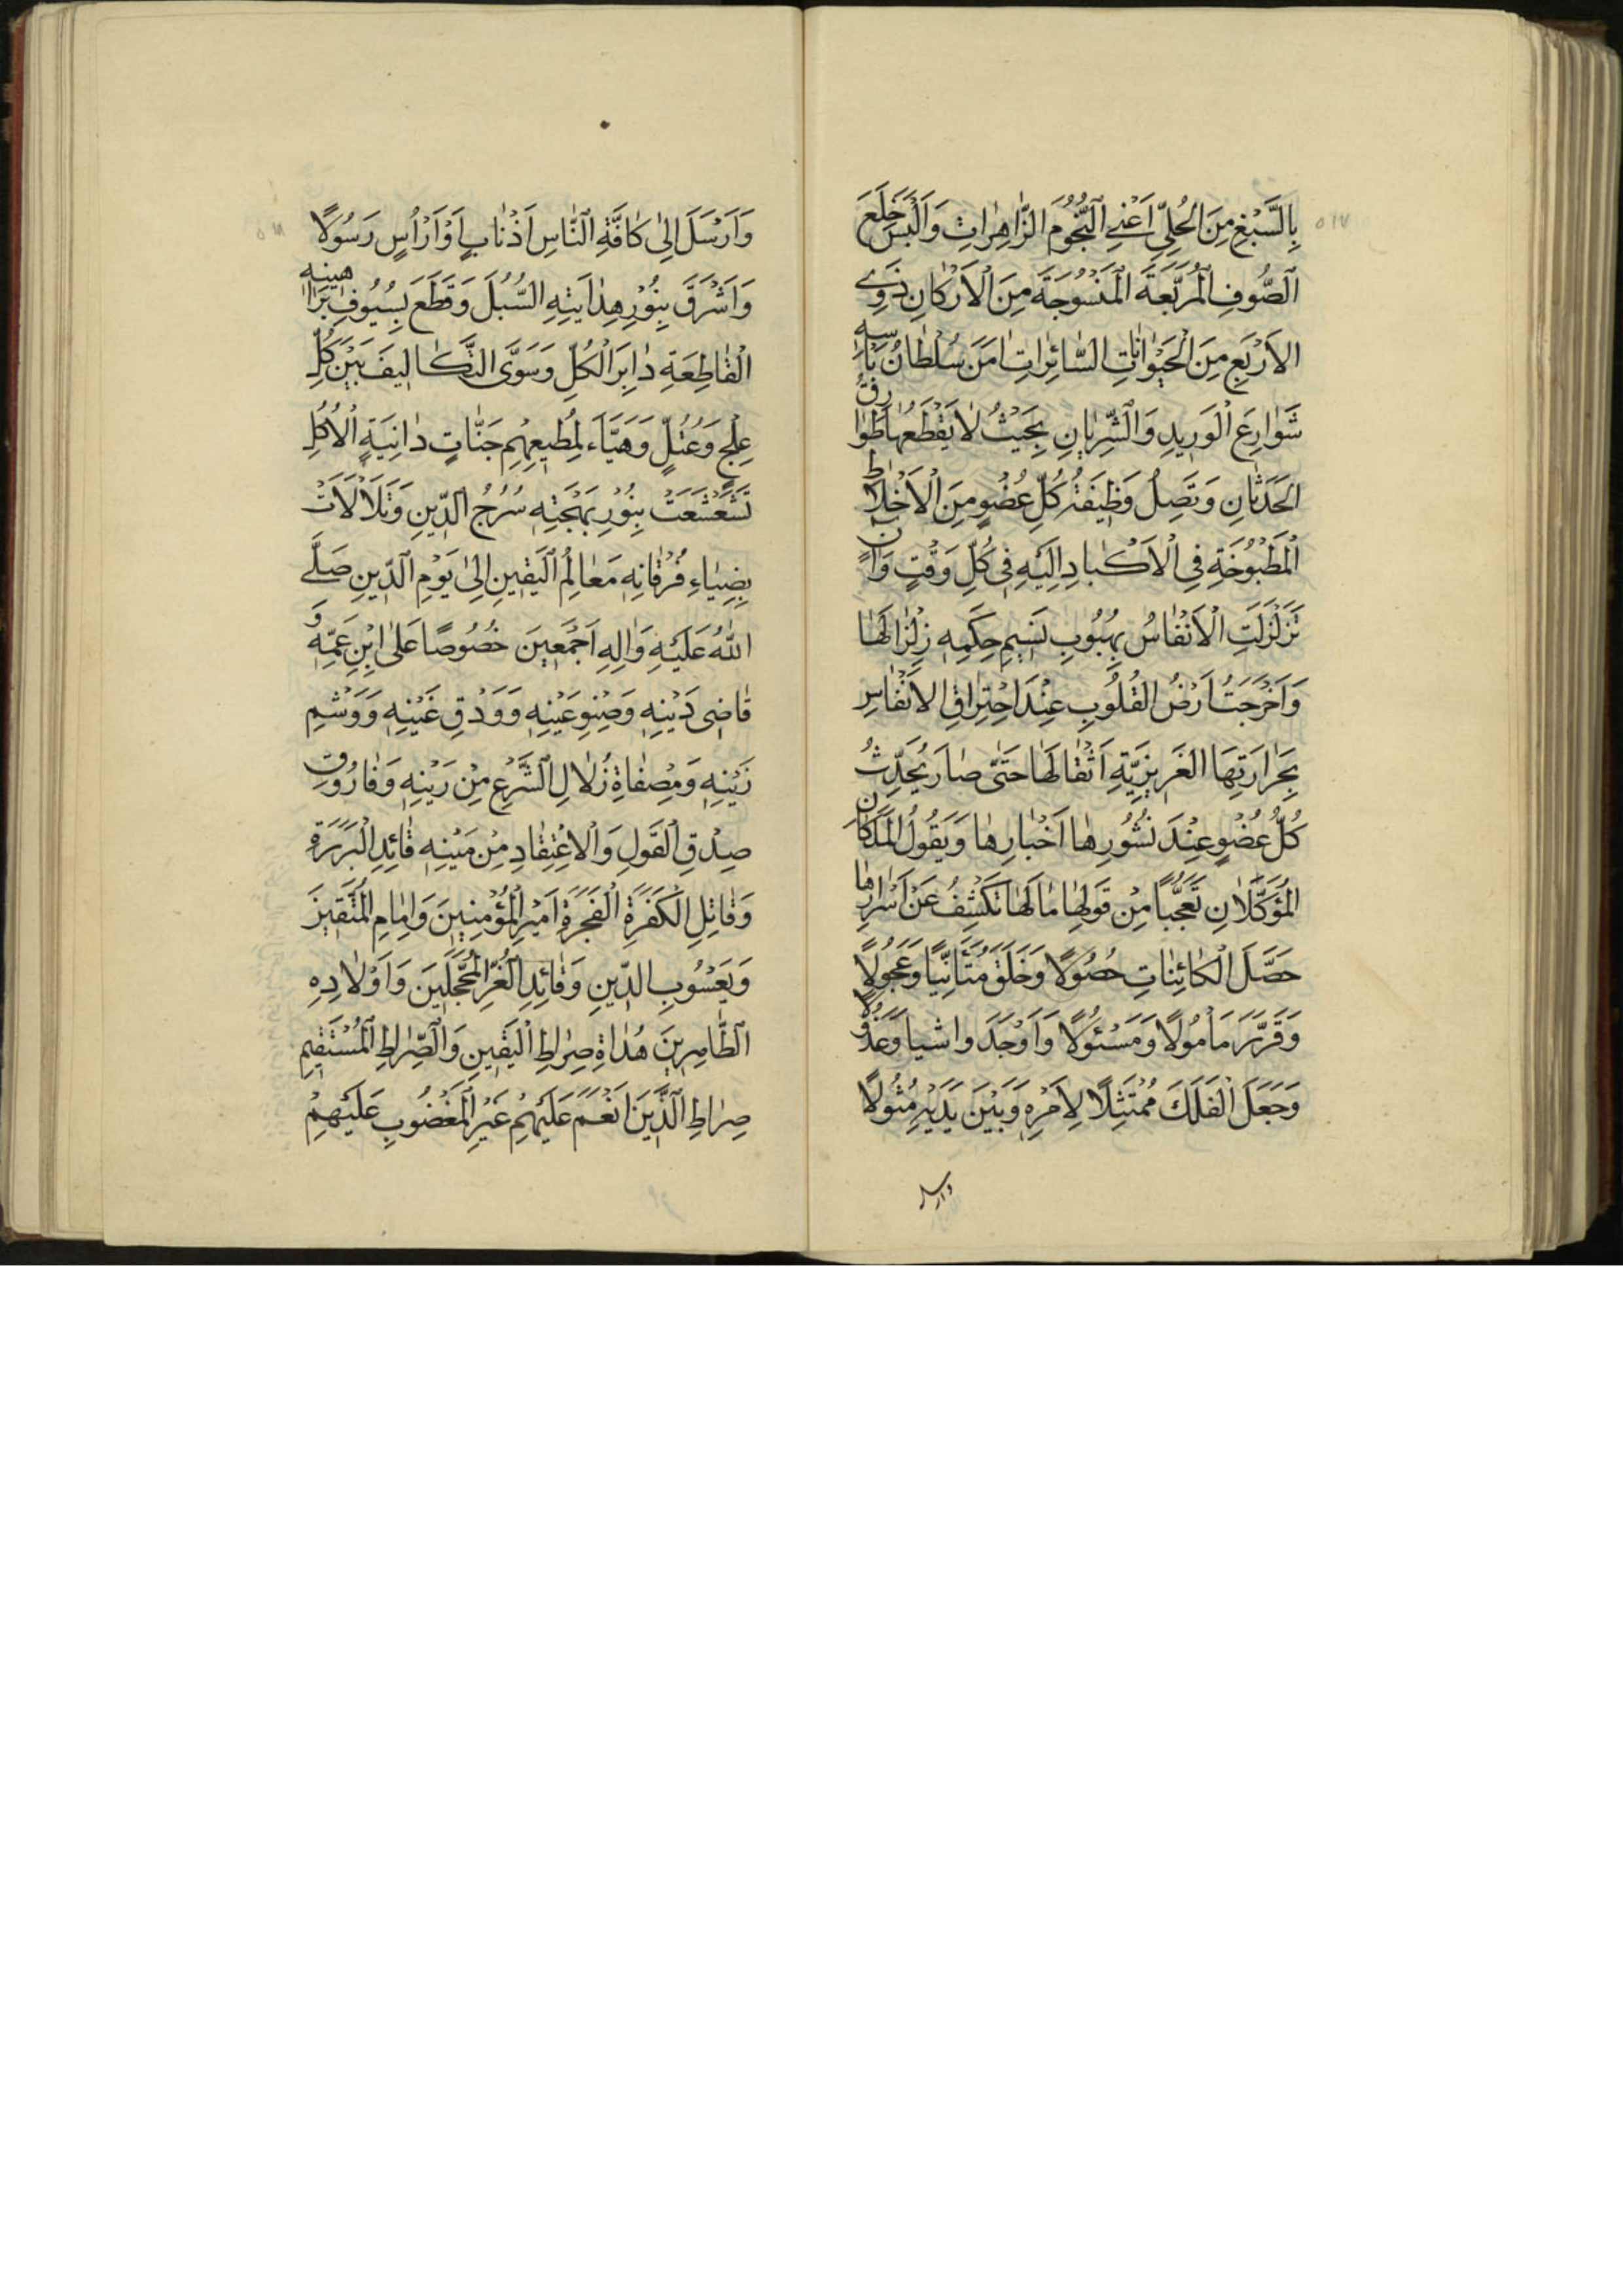 ٥١٧
بِالسَّبْغِ مِنَ الْحُلِيِّ اَعْنِي النُّجُومَ الزّٰاهِرٰاتِ وَاَلْبَسَ خِلَعَ
الصُّوفِ الْمُرَبَّعَةَ الْمَنْسُوجَةَ مِنَ الْاَرْكٰانِ ذَوِي
الاَرْبَعِ مِنَ الْحَيَوٰانٰاتِ السّٰائِرٰاتِ اٰمَنَ سُلْطٰانُ بَأْسِهِ
شَوٰارِعَ الْوَرِيدِ وَالشِّرْيٰانِ بِحَيْثُ لٰا يَقْطَعُهٰا طَوٰارِقُ
الحَدَثٰانِ وَتَصِلُ وَظِيفَةُ كُلِّ عُضْوٍ مِنَ الْاَخْلٰاطِ
الْمَطْبُوخَةِ فِي الْاَكْبٰادِ اِلَيْهِ فِي كُلِّ وَقْتٍ وَاٰنٍ
تَزَلْزَلَتِ الْاَنْفٰاسُ بِهُبُوبِ نَسِيمِ حِكَمِهِ زِلْزٰالَهٰا
وَاَخْرَجَتْ اَرْضُ القُلُوبِ عِنْدَ احْتِرٰاقِ الاَنْفٰاسِ
بِحَرٰارَتِهَا الغَرِيزِيَّةِ اَثْقٰالَهٰا حَتّٰى صٰارَ يُحَدِّثُ
كُلُّ عُضْوٍ عِنْدَ نُشُورِهٰا اَخْبٰارَهٰا وَيَقُولُ الْمَلَكٰانِ
الْمُوَكَّلٰانِ تَعَجُّبًا مِنْ قَوْلِهٰا مٰا لَهٰا تَكْشِفُ عَنْ اَسْرٰارِهٰا
حَصَّلَ الْكٰائِنٰاتِ حُصُولًا وَخَلَقَ مُتَاَنِّيًا وَعَجُولًا
وَقَرَّرَ مَاْمُولًا وَمَسْئُولًا وَاَوْجَدَ واشيا وَعَذُولًا
وَجَعَلَ الْفَلَكَ مُمْتَثِلًا لِاَمْرِهِ وَبَيْنَ يَدَيْهِ مُثُولًا
وارسل
٥١٨
وَاَرْسَلَ اِلٰى كٰافَّةِ النّٰاسِ اَذْنٰابٍ اَوْ اَرْاُسٍ رَسُولًا
وَاَشْرَقَ بِنُورِ هِدٰايَتِهِ السُّبُلَ وَقَطَعَ بِسُيُوفِ بَرٰاهِينِهِ
الْقٰاطِعَةِ دٰابِرَ الْكُلِّ وَسَوَّى التَّكٰالِيفَ بَيْنَ كُلِّ
عِلْجٍ وَعُتُلٍّ وَهَيَّاَء لِمُطِيعِيهِمْ جَنّٰاتٍ دٰانِيَةٍ الْاُكُلِ
تَشَعْشَعَتْ بِنُورِ بَهْجَتِهِ سُرُجُ الدِّينِ وَتَلَاْلَاَتْ
بِضِيٰاءِ فُرْقٰانِهِ مَعٰالِمُ الْيَقِينِ اِلٰى يَوْمِ الدِّينِ صَلَّى
اللّٰهُ عَلَيْهِ وَاٰلِهِ اَجْمَعِينَ خُصُوصًا عَلَى ابْنِ عَمِّهِ وَ
قٰاضِي دَيْنِهِ وَصِنْوِ عَيْنِهِ وَوَدْقِ غَيْنِهِ وَوَشْمِ
زَيْنِهِ وَمِصْفٰاةِ زُلٰالِ الشَّرْعِ مِنْ رَيْنِهِ وَفٰارُوقِ
صِدْقِ الْقَوْلِ وَالْاِعْتِقٰادِ مِنْ مَيْنِهِ قٰائِدِ الْبَرَرَةِ
وَقٰاتِلِ الْكَفَرَةِ الْفَجَرَةِ اَمِيرِ الْمُؤْمِنِينَ وَاِمٰامِ الْمُتَّقِينَ
وَيَعْسُوبِ الدِّينِ وَقٰائِدِ الْغُرِّ الْمُحَجَّلِينَ وَاَوْلٰادِهِ
الطّٰاهِرِينَ هُدٰاةِ صِرٰاطِ الْيَقِينِ وَالصِّرٰاطِ الْمُسْتَقِيمِ
صِرٰاطِ الَّذِينَ اَنْعَمَ عَلَيْهِمْ غَيْرِ الْمَغْضُوبِ عَلَيْهِمْ